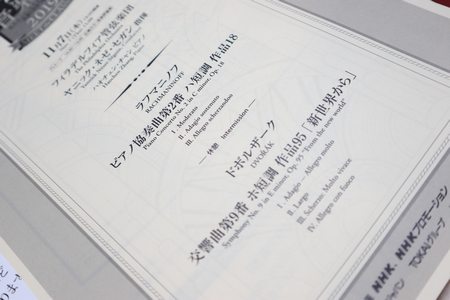 2019
11月7日
フィラデルフィア管弦楽団
The Philadelphia Orchestra
ヤニック・ネゼ=セガン 指揮
ハオチェン・チャン ピアノ
Haochen Zhang, Piano
ラフマニノフ
RACHMANINOFF
ピアノ協奏曲第2番 ハ短調 作品18
Piano Concerto No. 2 in C minor, Op. 18
I. Moderato
II. Adagio sostenuto
III. Allegro scherzando
— 休憩 intermission —
ドボルザーク
DVOŘÁK
交響曲第9番 ホ短調 作品95「新世界から」
Symphony No. 9 in E minor, Op. 95 "From the new world"
I. Adagio – Allegro molto
II. Largo
III. Scherzo: Molto vivace
IV. Allegro con fuoco
NHK、NHKプロモーション
TOKAIグループ